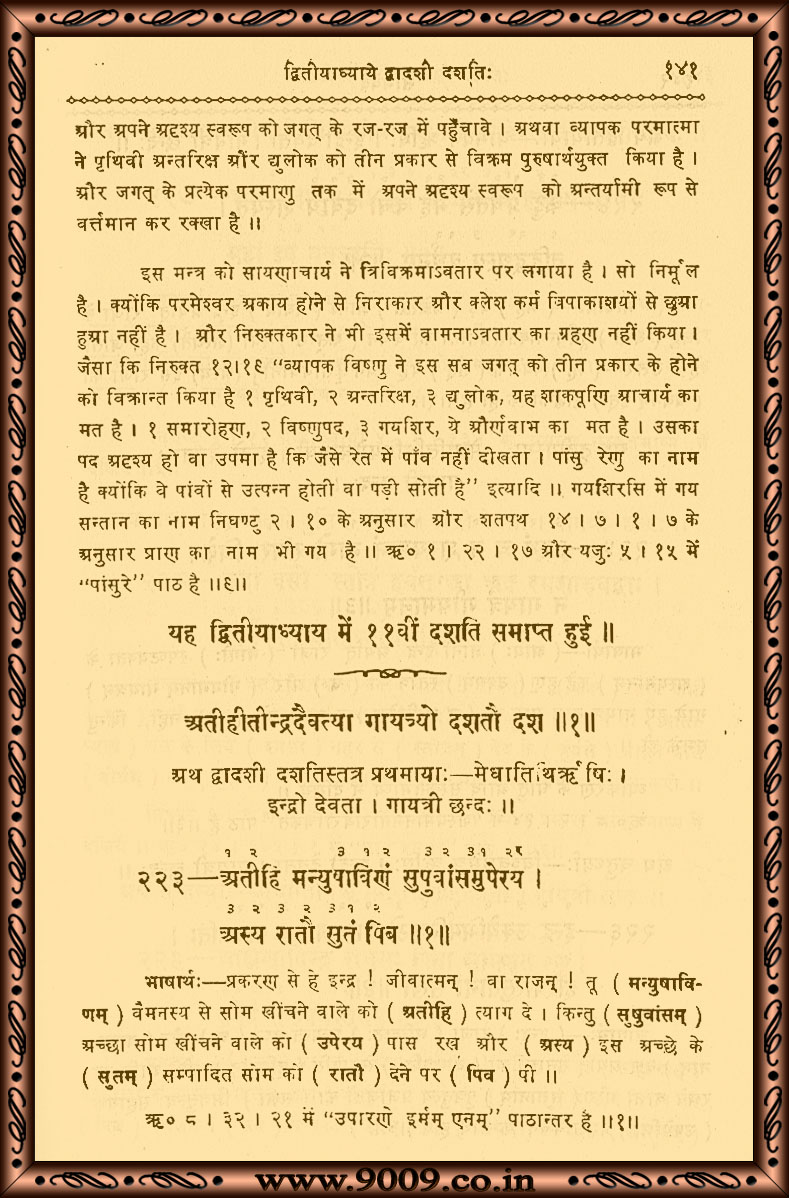 द्वितीयाध्याये द्वादशी दशतिः १४१
और अपने अदृश्य स्वरूप को जगत् के रज-रज में पहुँचावे । अथवा व्यापक परमात्मा
ने पृथिवी अन्तरिक्ष और द्युलोक को तीन प्रकार से विक्रम पुरुषार्थयुक्त किया है ।
और जगत् के प्रत्येक परमाणु तक में अपने अदृश्य स्वरूप को अन्तर्यामी रूप से
वर्त्तमान कर रक्खा है ॥
इस मन्त्र को सायणाचार्य ने त्रिविक्रमाऽवतार पर लगाया है । सो निर्मूल
है । क्योंकि परमेश्वर अकाय होने से निराकार और क्लेश कर्म विपाकाशयों से छुआ
हुआ नहीं है । और निरुक्तकार ने भी इसमें वामनाऽवतार का ग्रहण नहीं किया ।
जैसा कि निरुक्त १२।१९ “व्यापक विष्णु ने इस सब जगत् को तीन प्रकार के होने
को विक्रान्त किया है १ पृथिवी, २ अन्तरिक्ष, ३ द्युलोक, यह शाकपूणि आचार्य का
मत है । १ समारोहण, २ विष्णुपद, ३ गयशिर, ये और्णवाभ का मत है । उसका
पद अदृश्य हो वा उपमा है कि जैसे रेत में पाँव नहीं दीखता । पांसु रेणु का नाम
है क्योंकि वे पांवों से उत्पन्न होती वा पड़ी सोती है” इत्यादि ॥ गयशिरसि में गय
सन्तान का नाम निघण्टु २ । १० के अनुसार और शतपथ १४ । ७ । १ । ७ के
अनुसार प्राण का नाम भी गय है ॥ ऋ० १ । २२ । १७ और यजुः ५ । १५ में
“पांसुरे” पाठ है ॥९॥
यह द्वितीयाध्याय में ११वीं दशति समाप्त हुई ॥
अतीहीतीन्द्रदैवत्या गायत्र्यो दशतौ दश ॥१॥
अथ द्वादशी दशतिस्तत्र प्रथमायाः—मेधातिथिर्ऋषिः ।
इन्द्रो देवता । गायत्री छन्दः ॥
१ २ ३ १ २ ३ २ ३१ २र
२२३—अतीहि मन्युषाविणं सुषुवांसमुपेरय ।
३ २ ३ २ ३ १ २
अस्य रातौ सुतं पिब ॥१॥
भाषार्थः—प्रकरण से हे इन्द्र ! जीवात्मन् ! वा राजन् ! तू ( मन्युषावि-
णम् ) वैमनस्य से सोम खींचने वाले को ( अतीहि ) त्याग दे । किन्तु ( सुषुवांसम् )
अच्छा सोम खींचने वाले को ( उपेरय ) पास रख और ( अस्य ) इस अच्छे के
( सुतम् ) सम्पादित सोम को ( रातौ ) देने पर ( पिब ) पी ॥
ऋ० ८ । ३२ । २१ में “उपारणे इर्मम् एनम्” पाठान्तर है ॥१॥
www.9009.co.in